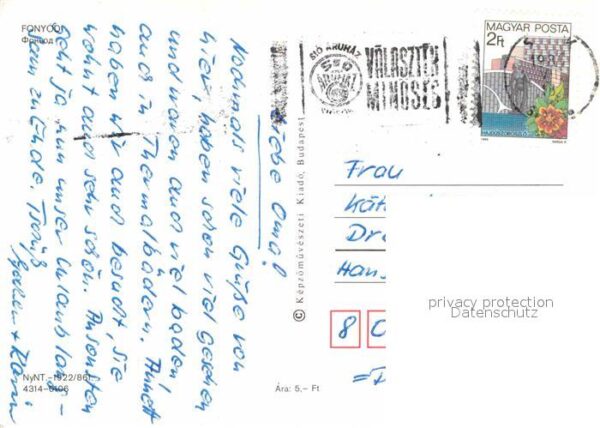 FONYÓD
Фоньод
Liebe Oma!
Nochmals viele Grüße von
hier, haben schon viel gesehen
und waren auch viel baden
auch in Thermalbädern. Annett
haben wir auch besucht, sie
wohnt auch sehr schön. Ansonsten
geht ja nun unser Urlaub langsam zu Ende. Tschüß
NyNT.-1922/861
4314-6106
© Képzőművészeti Kiadó, Budapest
Ára: 5,- Ft
SIÓ ÁRUHÁZ
VÁLASZTÉK
MINŐSÉG
MAGYAR POSTA
2Ft
HAJDÚSZOBOSZLÓ
Frau
Kät
Dr
Han
8
privacy protection
Datenschutz